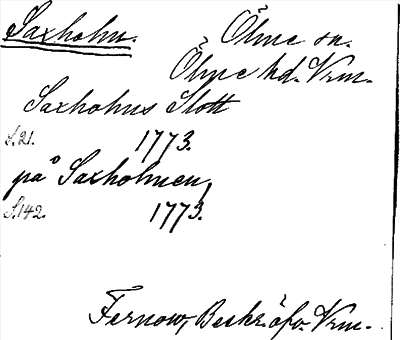 Saxholm. Ölme sn.
Ölme hd. Vrm.
Saxholms Slott
S.21. 1773.
på Saxholmen,
S.142. 1773.
Fernow, Beskr. öfv. Vrm.